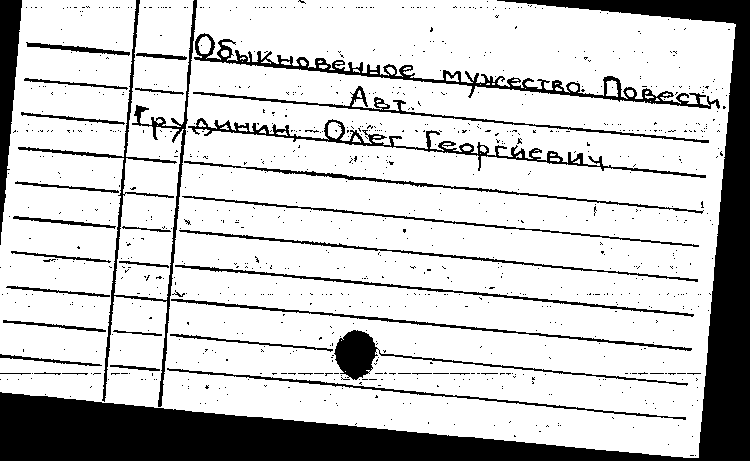 Обыкновенное мужество. Повести.
Авт.
Грудинин, Олег Георгиевич